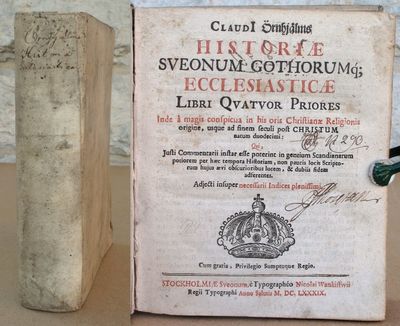 CLAUDI Örnhjälms
HISTORIÆ
SVEONUM GOTHORUMq́;
ECCLESIASTICÆ
LIBRI QVATVOR PRIORES
Inde â magis conspicua in his oris Christianæ Religionis
origine, usque ad finem seculi post CHRISTUM
natum duodecimi:
Qui,
Justi Commentarii instar esse poterint in gentium Scandianarum
potiorem per hæc tempora Historiam, non paucis locis Scripto-
rum hujus ævi obscurioribus lucem, & dubiis fidem
adferentes.
Adjecti insuper necessarii Indices plenissimi.
Cum gratia & Privilegio Sumptuque Regio.
STOCKHOLMIÆ Sveonum, è Typographéo Nicolai Wankiffwii
Regii Typographi Anno Salutis M. DC. LXXXIX.